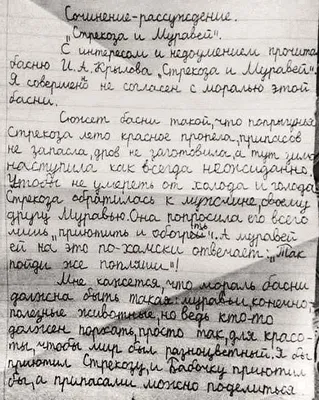 Сочинение-рассуждение.
"Стрекоза и Муравей".
С интересом и недоумением прочитал
басню И.А.Крылова "Стрекоза и Муравей".
Я совершенно не согласен с моралью этой
басни.
Сюжет басни такой, что попрыгунья
Стрекоза лето красное пропела, припасов
не запасла, дров не заготовила, а тут зима
наступила как всегда неожиданно.
Чтобы не умереть от холода и голода
Стрекоза обратилась к мужчине, своему
другу Муравью. Она попросила его всего
лишь "приютить и обогреть". А муравей
ей на это по-хамски отвечает: "Так
пойди же попляши"!
Мне кажется, что мораль басни
должна быть такая: муравьи, конечно,
полезные животные, но ведь кто-то
должен порхать, просто так, для красо-
ты, чтобы мир был разноцветный. Я бы
приютил Стрекозу, и Бабочку приютил
бы, а припасами можно поделиться.